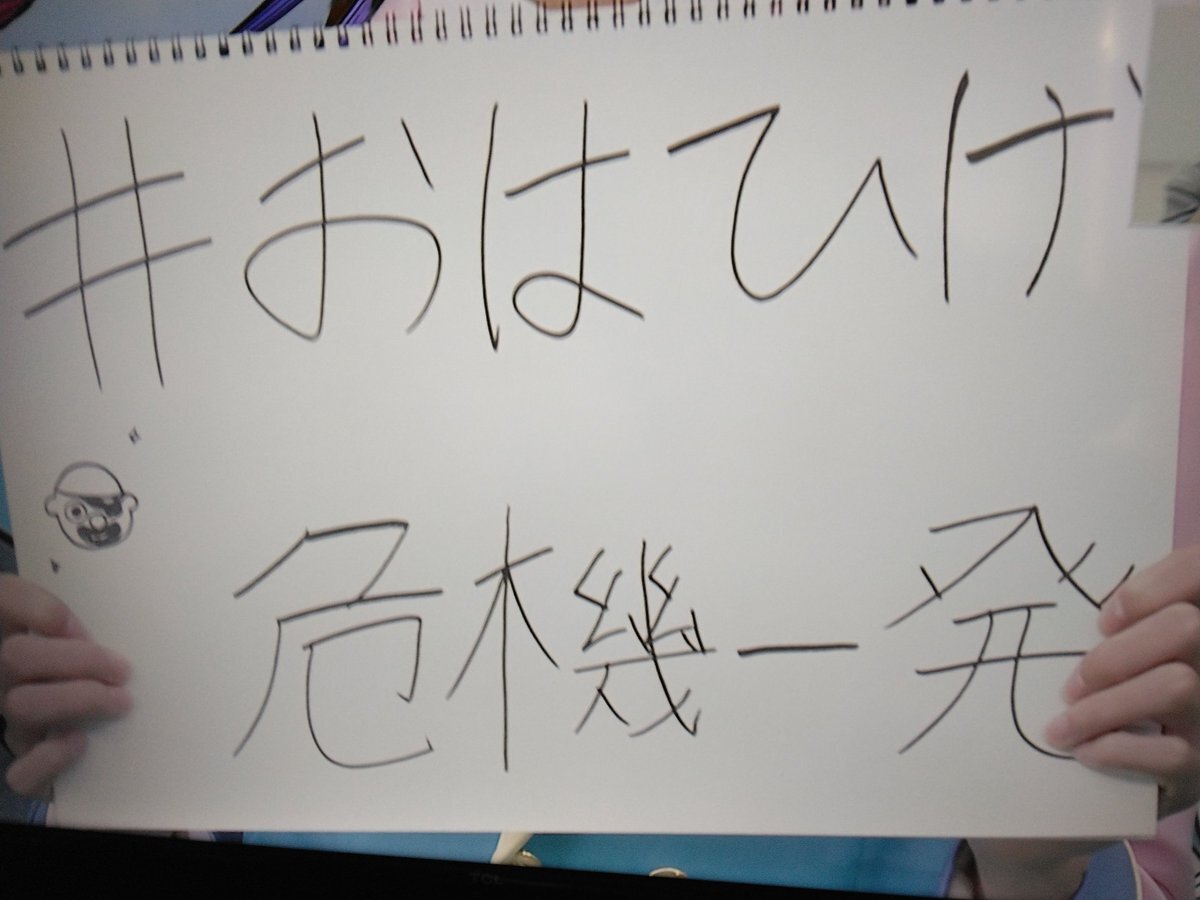 #おはひげ
危機一発
TCL